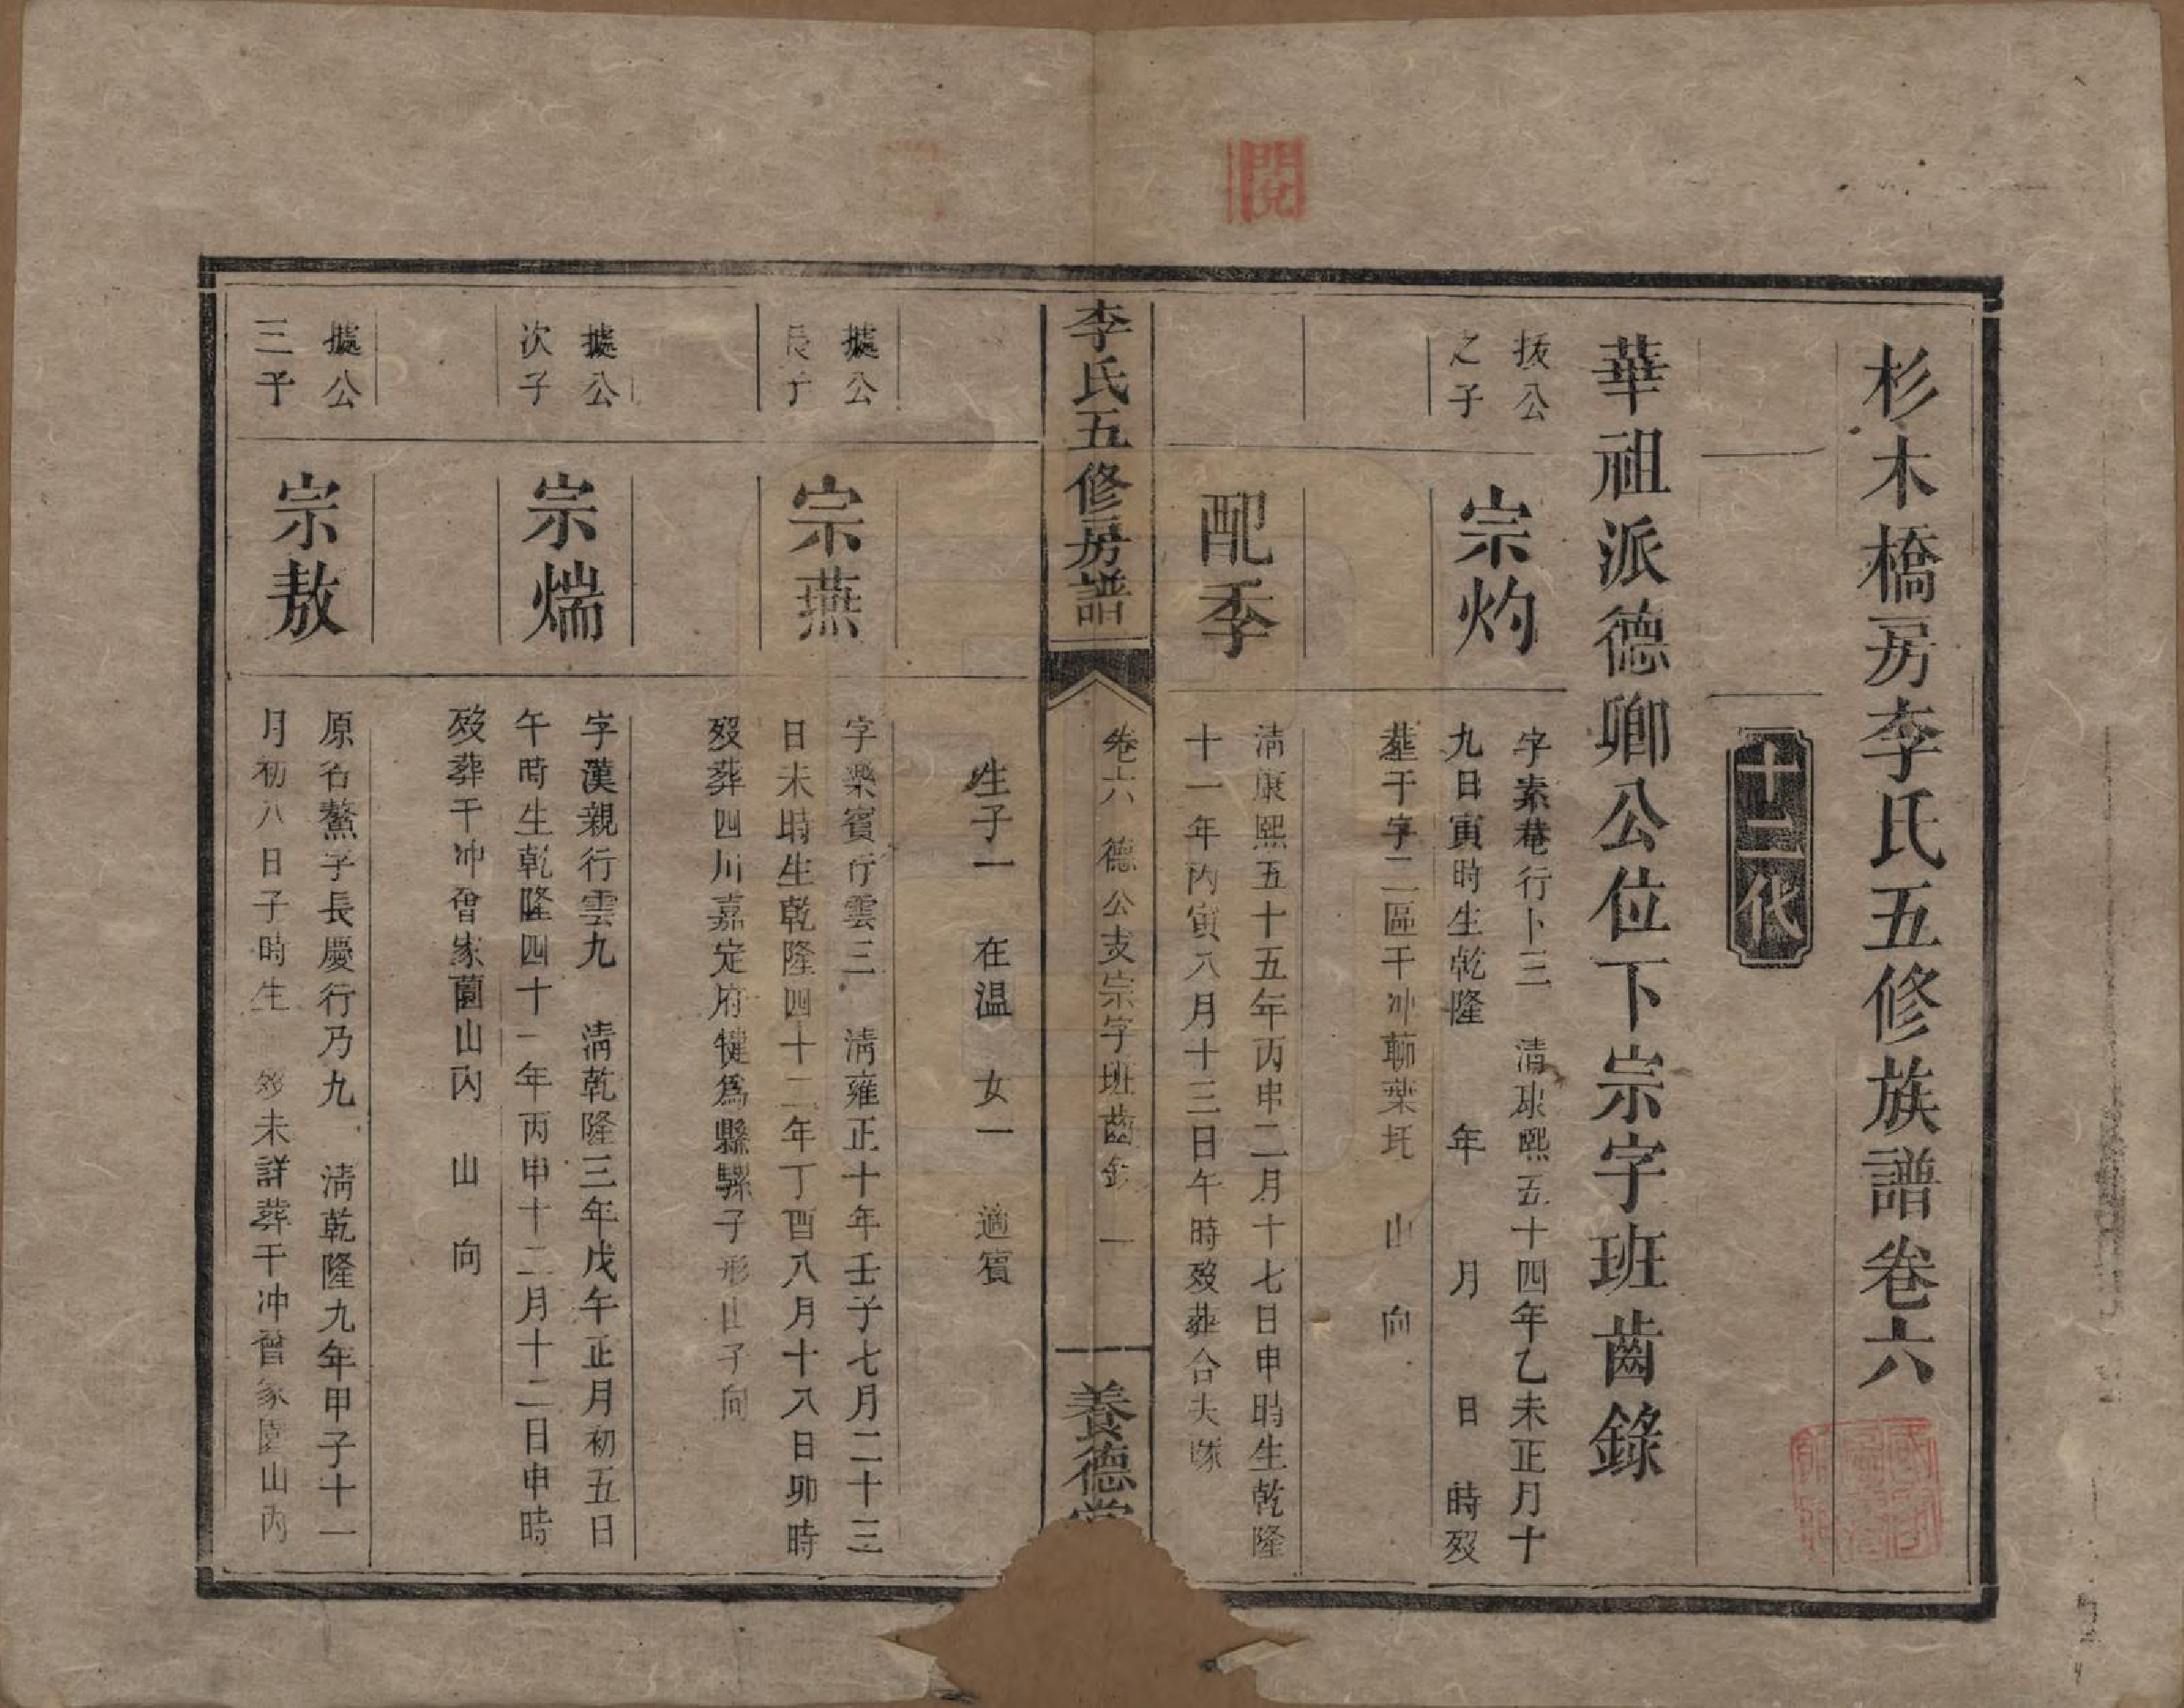 杉木橋房李氏五修族譜卷六
十二代
華祖派德卿公位下宗字班齒錄
拔公
之子
宗灼
字素菴行卜三　清康熙五十四年乙未正月十
九日寅時生乾隆　年　月　日　時歿
葬干字二區干冲　山　向
配李
清康熙五十五年丙申二月十七日申時生乾隆
十一年丙寅八月十三日午時歿葬合夫塚
李氏五修房譜
卷六　德公支宗字班齒錄　一
養德堂
生子一　在温　女一　適賓
據公
長子
宗燕
字樂賓行雲三　清雍正十年壬子七月二十三
日未時生乾隆四十二年丁酉八月十八日卯時
歿葬四川嘉定府犍爲縣騾子形山子向
據公
次子
宗煓
字漢親行雲九　清乾隆三年戊午正月初五日
午時生乾隆四十一年丙申十二月十二日申時
歿葬干冲曾家園山內　山　向
據公
三子
宗敖
原名鰲字長慶行乃九　清乾隆九年甲子十一
月初八日子時生　歿未詳葬干冲曾家園山內